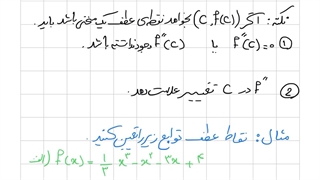 نکته: اگر (C, f(C)) بخواهد نقطه‌ی عطف یک منحنی باشد باید.
① f″(C)=0 یا f″(C) وجود نداشته باشد.
② f″ در C تغییر علامت دهد.
مثال: نقاط عطف توابع زیر را تعیین کنید.
الف) f(x) = 1/3 x³ - x² - 3x + 4